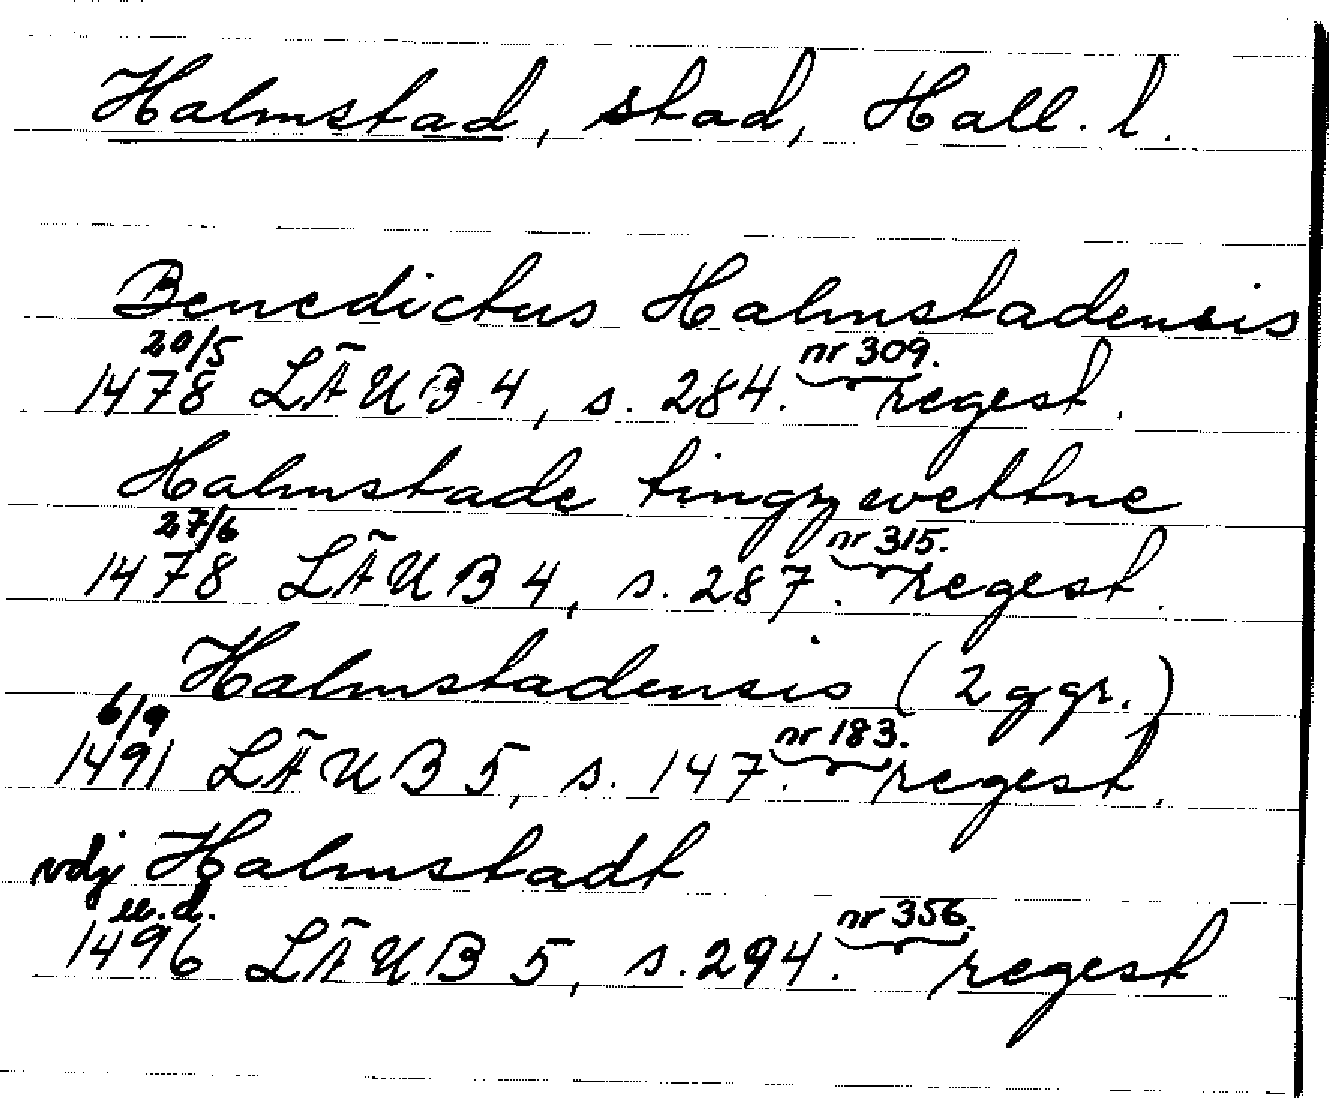 Halmstad, stad, Hall. l.
Benedictus Halmstadensis
20/5 nr 309.
1478 LÄUB 4, s. 284. regest.
Halmstade tingzwettne
27/6 nr 315.
1478 LÄUB 4, s. 287. regest.
Halmstadensis (2 ggr.)
6/9 nr 183.
1491 LÄUB 5, s. 147. regest.
vdj Halmstadt
u.d. nr 356.
1496 LÄUB 5, s. 294. regest